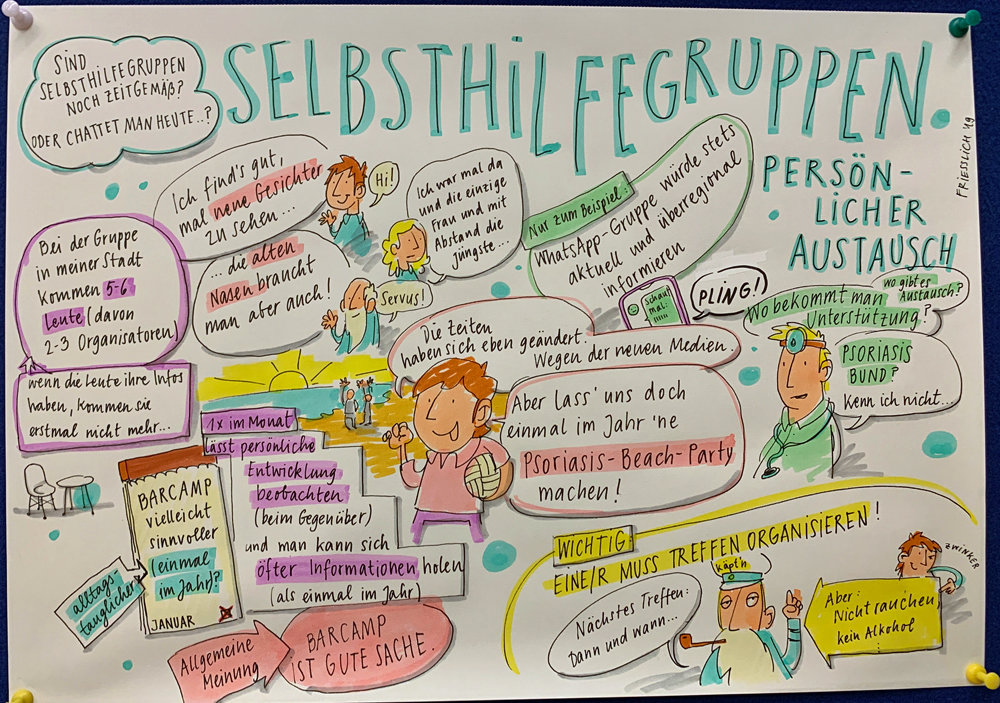 SIND
SELBSTHILFEGRUPPEN
NOCH ZEITGEMÄß?
ODER CHATTET MAN HEUTE..?
SELBSTHILFEGRUPPEN.
PERSÖN-
LICHER
AUSTAUSCH
FRIESSLICH '19
Ich find's gut,
mal neue Gesichter
zu sehen...
Hi!
... die alten
Nasen braucht
man aber auch!
Servus!
Ich war mal da
und die einzige
Frau und mit
Abstand die
jüngste...
Nur zum Beispiel:
WhatsApp-Gruppe würde stets
aktuell und überregional
informieren
Schaut
mal:
PLING!
Bei der Gruppe
in meiner Stadt
kommen 5-6
Leute (davon
2-3 Organisatoren)
wenn die Leute ihre Infos
haben, kommen sie
erstmal nicht mehr...
Die Zeiten
haben sich eben geändert.
Wegen der neuen Medien.
Aber lass' uns doch
einmal im Jahr 'ne
Psoriasis-Beach-Party
machen!
Wo bekommt man
Unterstützung?
wo gibt es
Austausch?
PSORIASIS
BUND?
Kenn ich nicht...
1x im Monat
lässt persönliche
Entwicklung
beobachten
(beim Gegenüber)
und man kann sich
öfter Informationen holen
(als einmal im Jahr)
BARCAMP
vielleicht
sinnvoller
(einmal
im Jahr)?
JANUAR
alltags-
tauglicher
Allgemeine
Meinung
BARCAMP
IST GUTE SACHE.
WICHTIG:
EINE/R MUSS TREFFEN ORGANISIEREN!
Nächstes Treffen:
Dann und wann...
käpt'n
Aber:
Nicht rauchen
kein Alkohol
ZWINKER